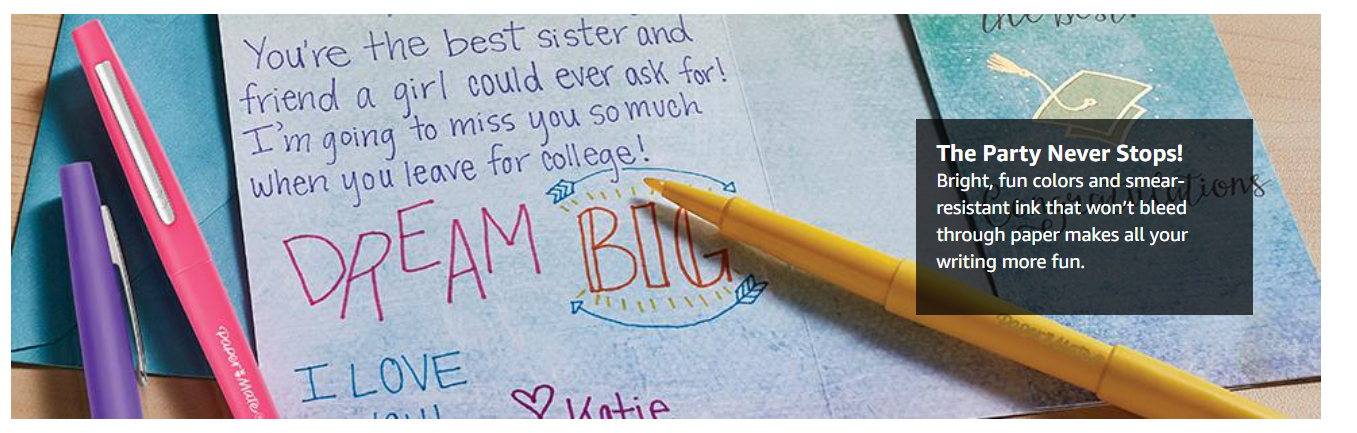 You're the best sister and
friend a girl could ever ask for!
I'm going to miss you so much
when you leave for college!
DREAM BIG
I LOVE
Katie
the best!
Congratulations
The Party Never Stops!
Bright, fun colors and smear-
resistant ink that won't bleed
through paper makes all your
writing more fun.
paper mate
paper mate